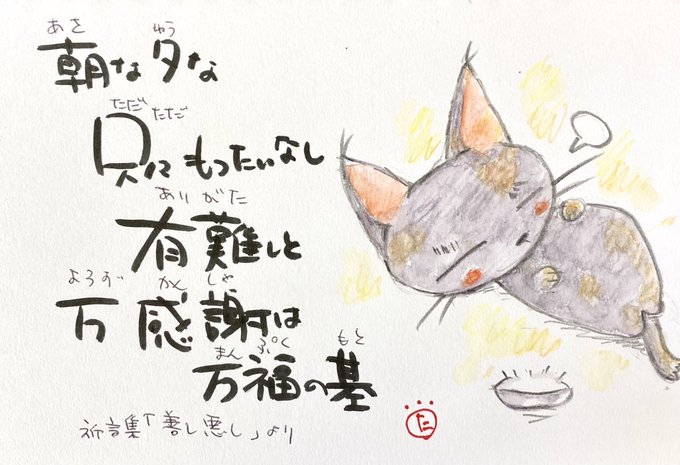 あさ ゆう
朝な夕な
ただ ただ
只々もったいなし
ありがた
有難しと
よろず かんしゃ
万感謝は
まんぷく もと
万福の基
祈言集「善し悪し」より
た